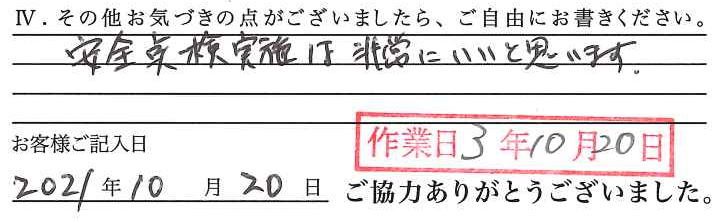 Ⅳ．その他お気づきの点がございましたら、ご自由にお書きください。
安全点検実施は非常にいいと思います.
お客様ご記入日
作業日3年10月20日
2021年10月20日 ご協力ありがとうございました。